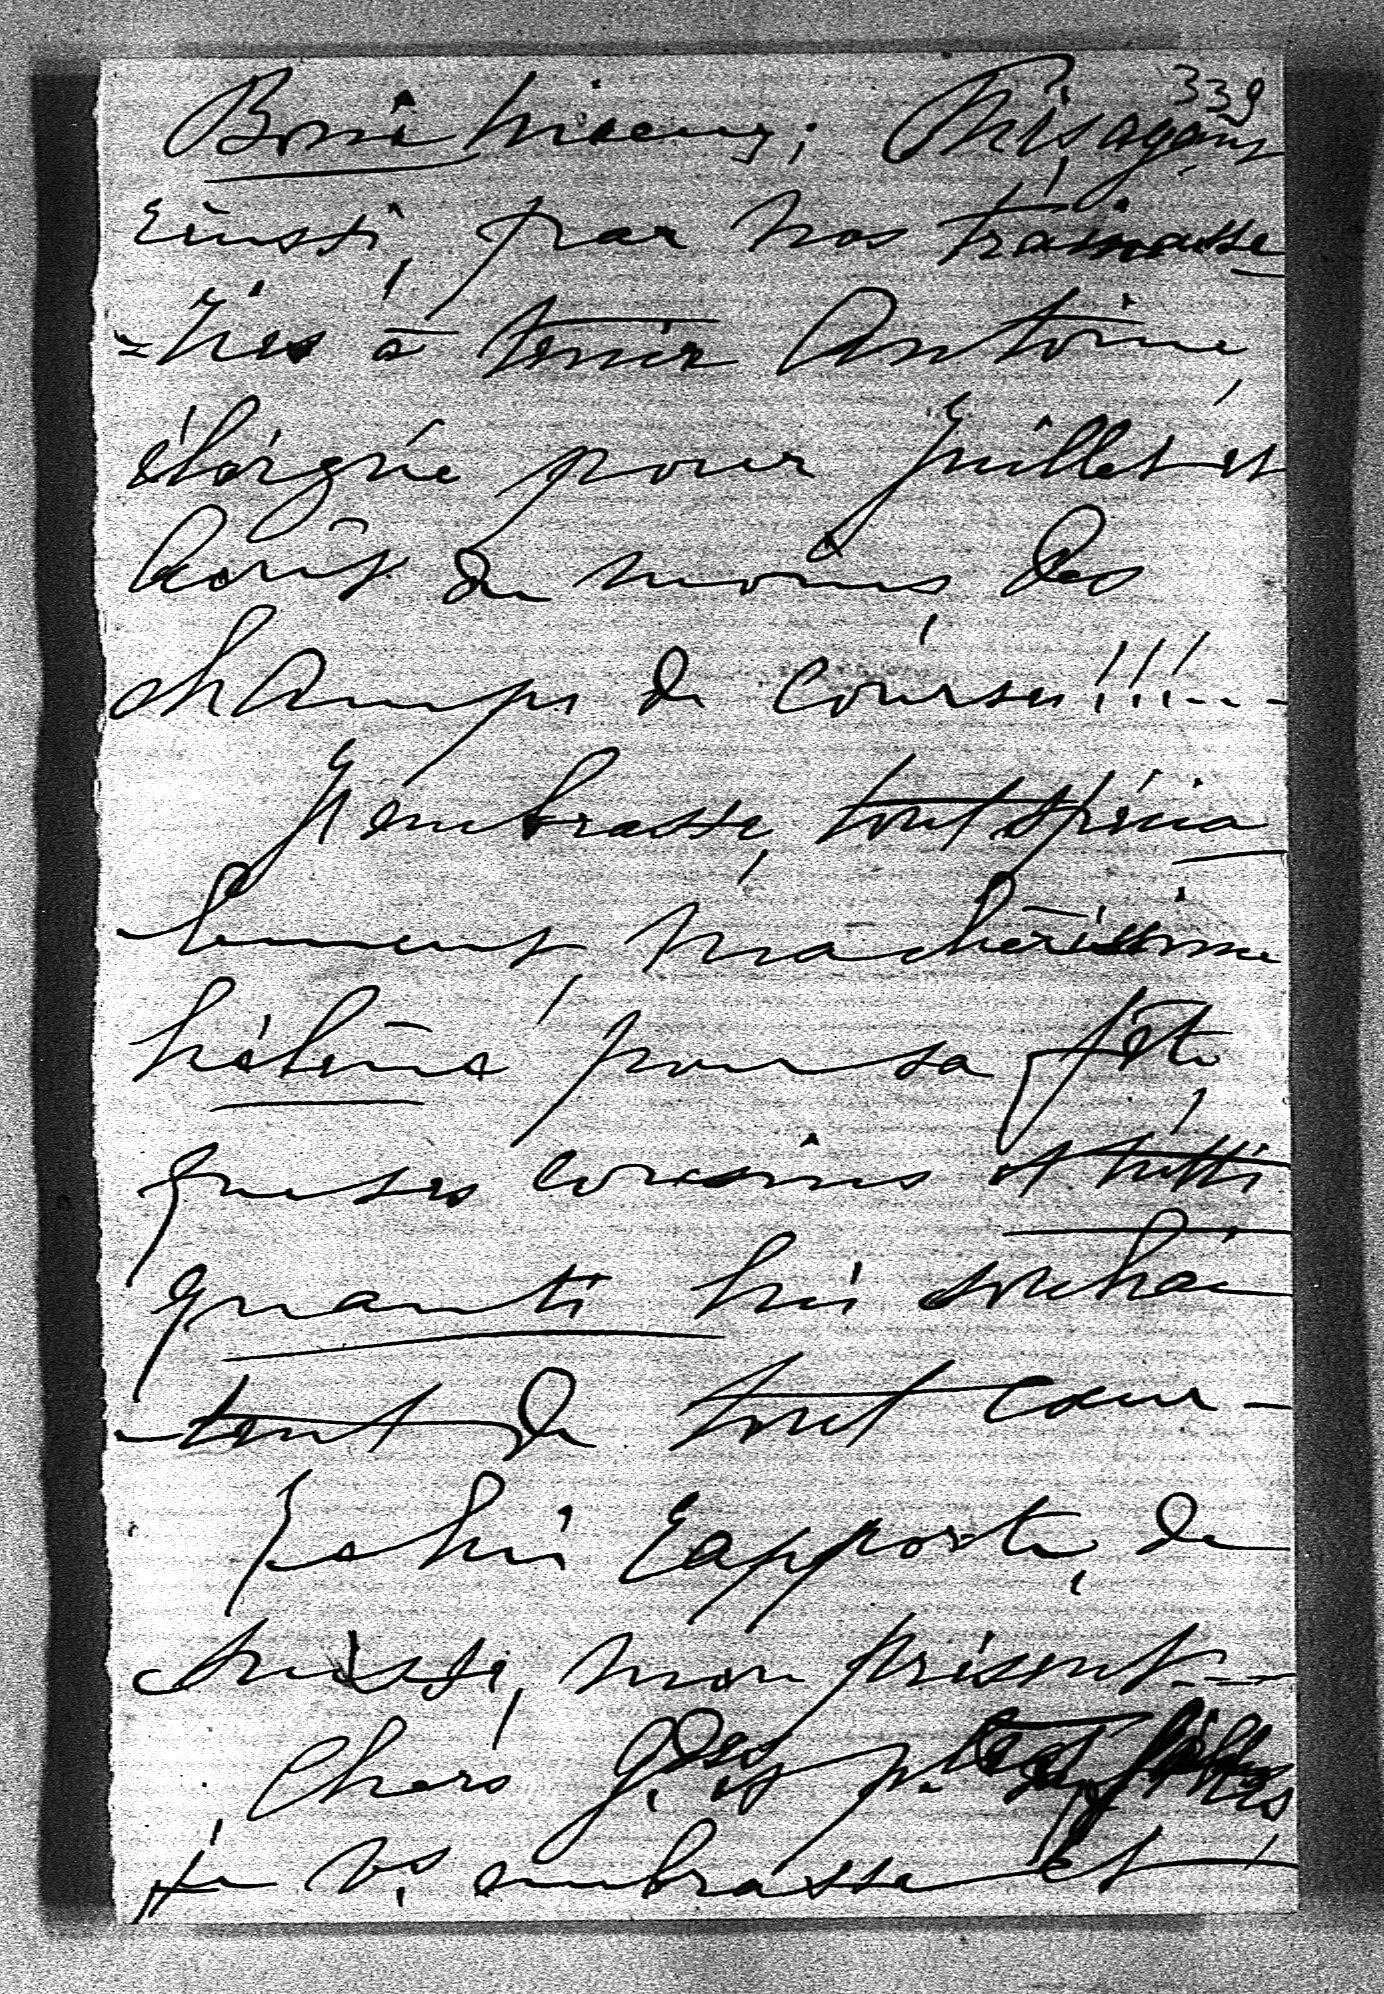 339
Bonis Mieux; Thisayant
réussi, par nos trainasse
-ries à tenir Antoine
éloigné pour Juillet et
Août du moins, des
champs de courses!!!---
J'embrasse, tout spécia
-lement, ma chérissime
hélène pour sa fête,
que ses cousins et tutti
quanti lui souhai
-tent de tout cœur -
Je lui rapporte, de
mon présent---
Chers Gds et p.
je vs embrasse et